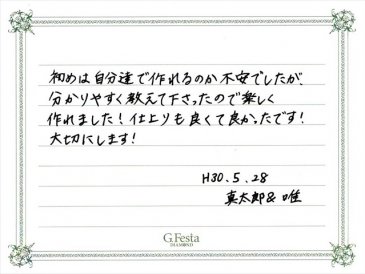 初めは自分達で作れるのか不安でしたが、
分かりやすく教えて下さったので楽しく
作れました！仕上りも良くて良かったです！
大切にします！
H30.5.28
真太郎& 唯
G.Festa
DIAMOND